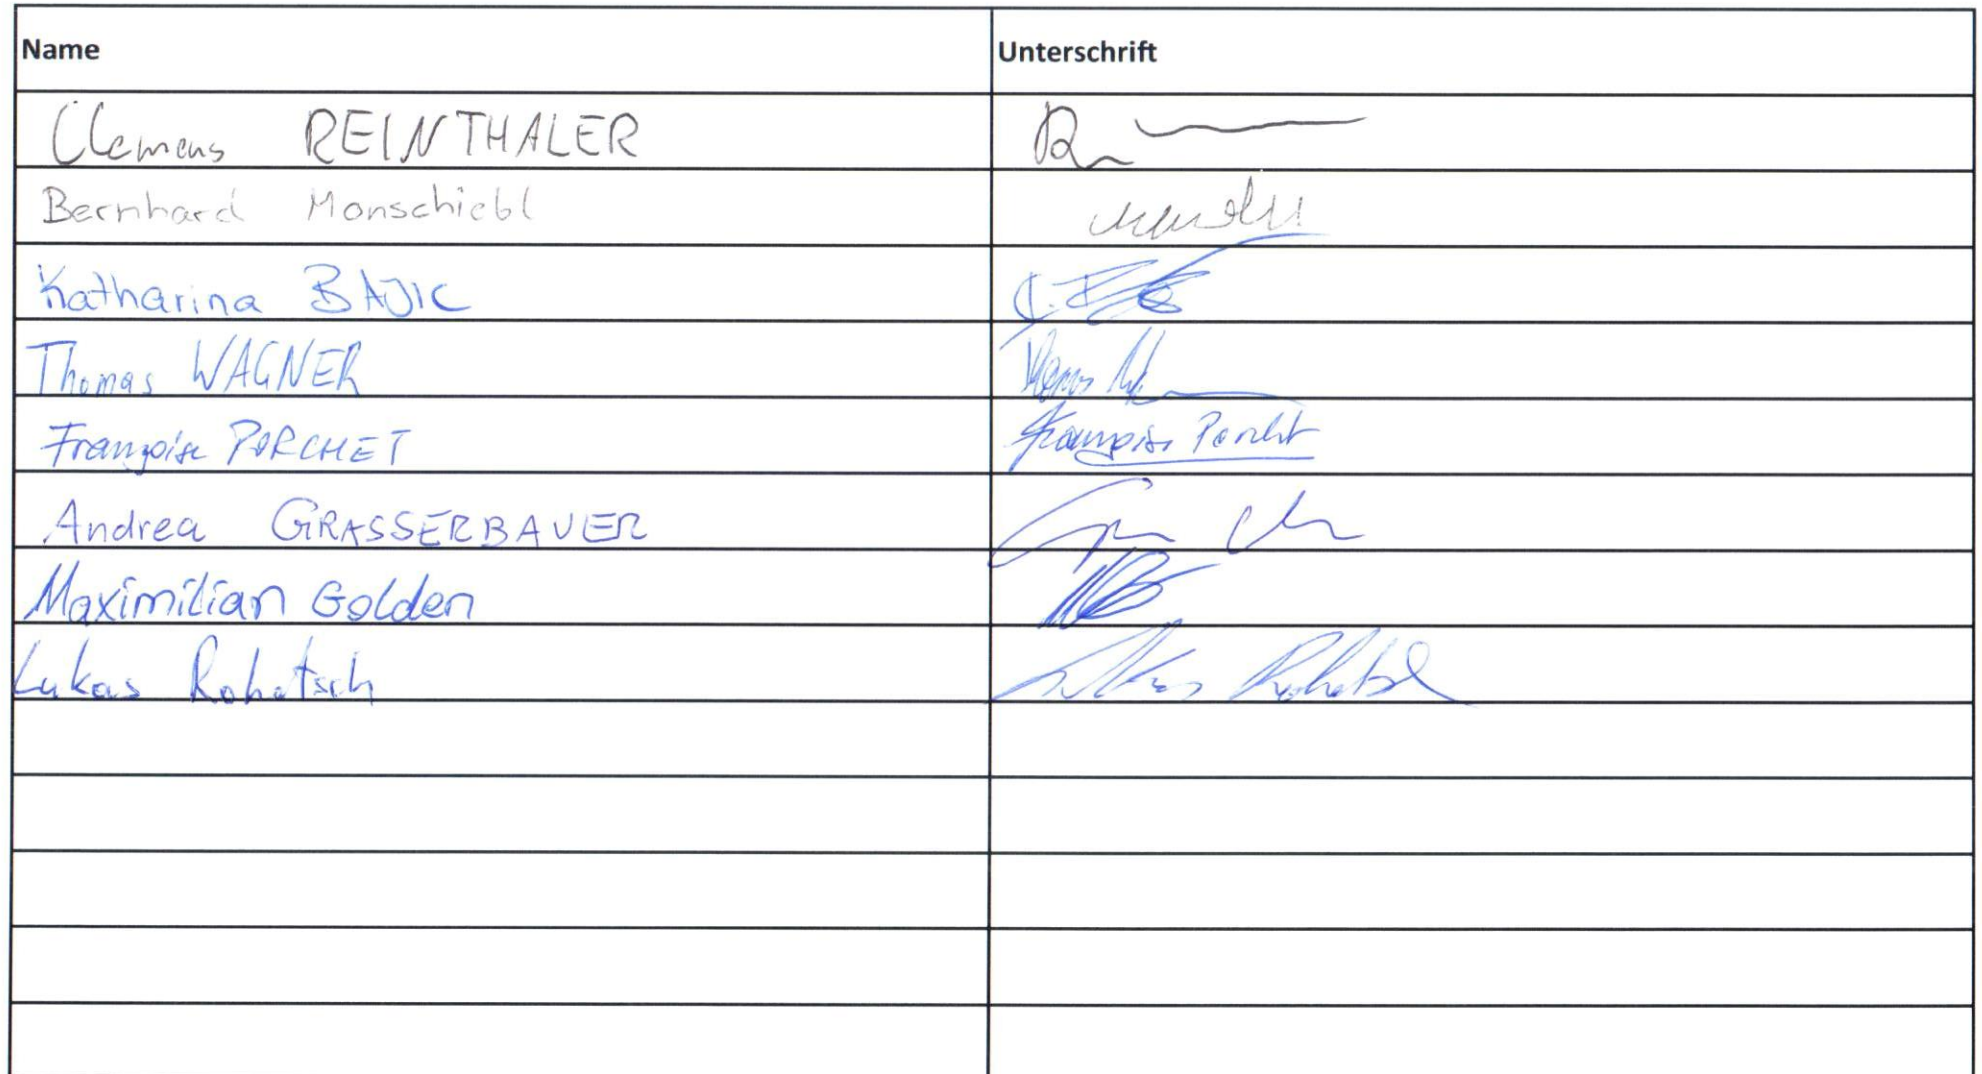 Name Unterschrift
Clemens REINTHALER
Bernhard Monschiebl
Katharina BAJIC
Thomas WAGNER
Françoise PORCHET Françoise Porchet
Andrea GRASSERBAUER
Maximilian Golden
Lukas Rohatsch Lukas Rohatsch